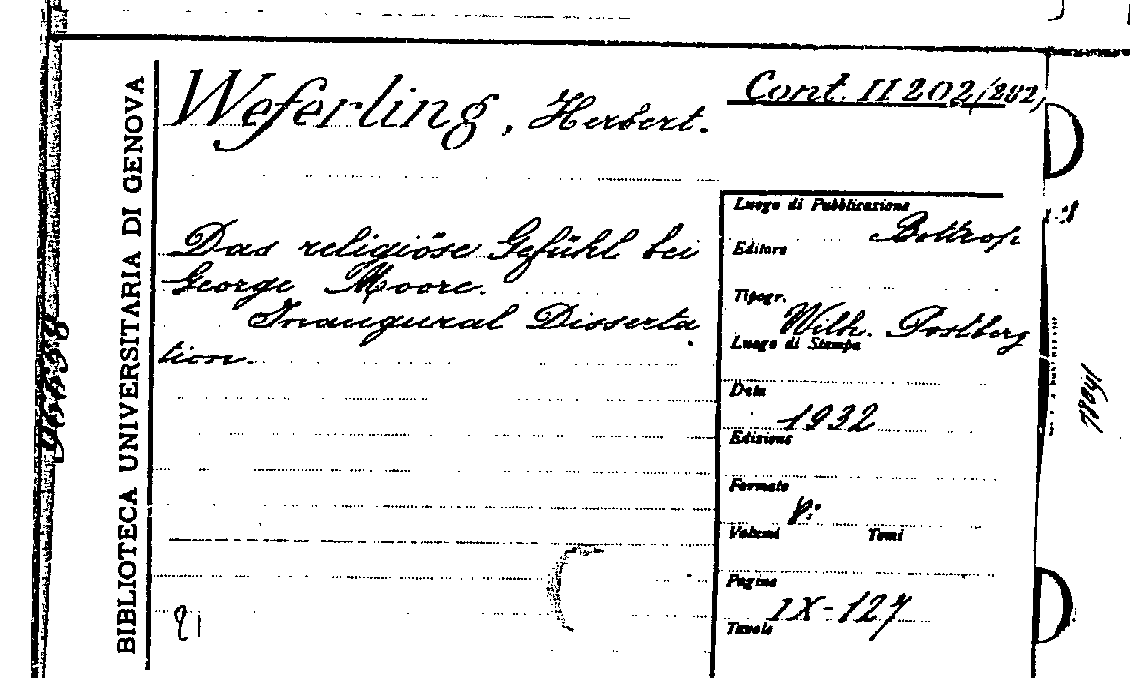 BIBLIOTECA UNIVERSITARIA DI GENOVA
Weferling, Herbert.
Cont. II 202/282,
Das religiöse Gefühl bei
George Moore.
Inaugural Disserta
tion.
21
Luogo di Pubblicazione
Bottrop
Editore
Tipogr.
Wilh. Postberg
Luogo di Stampa
Data
1932
Edizione
Formato
8:
Volumi Tomi
Pagine
IX-127
Tavole